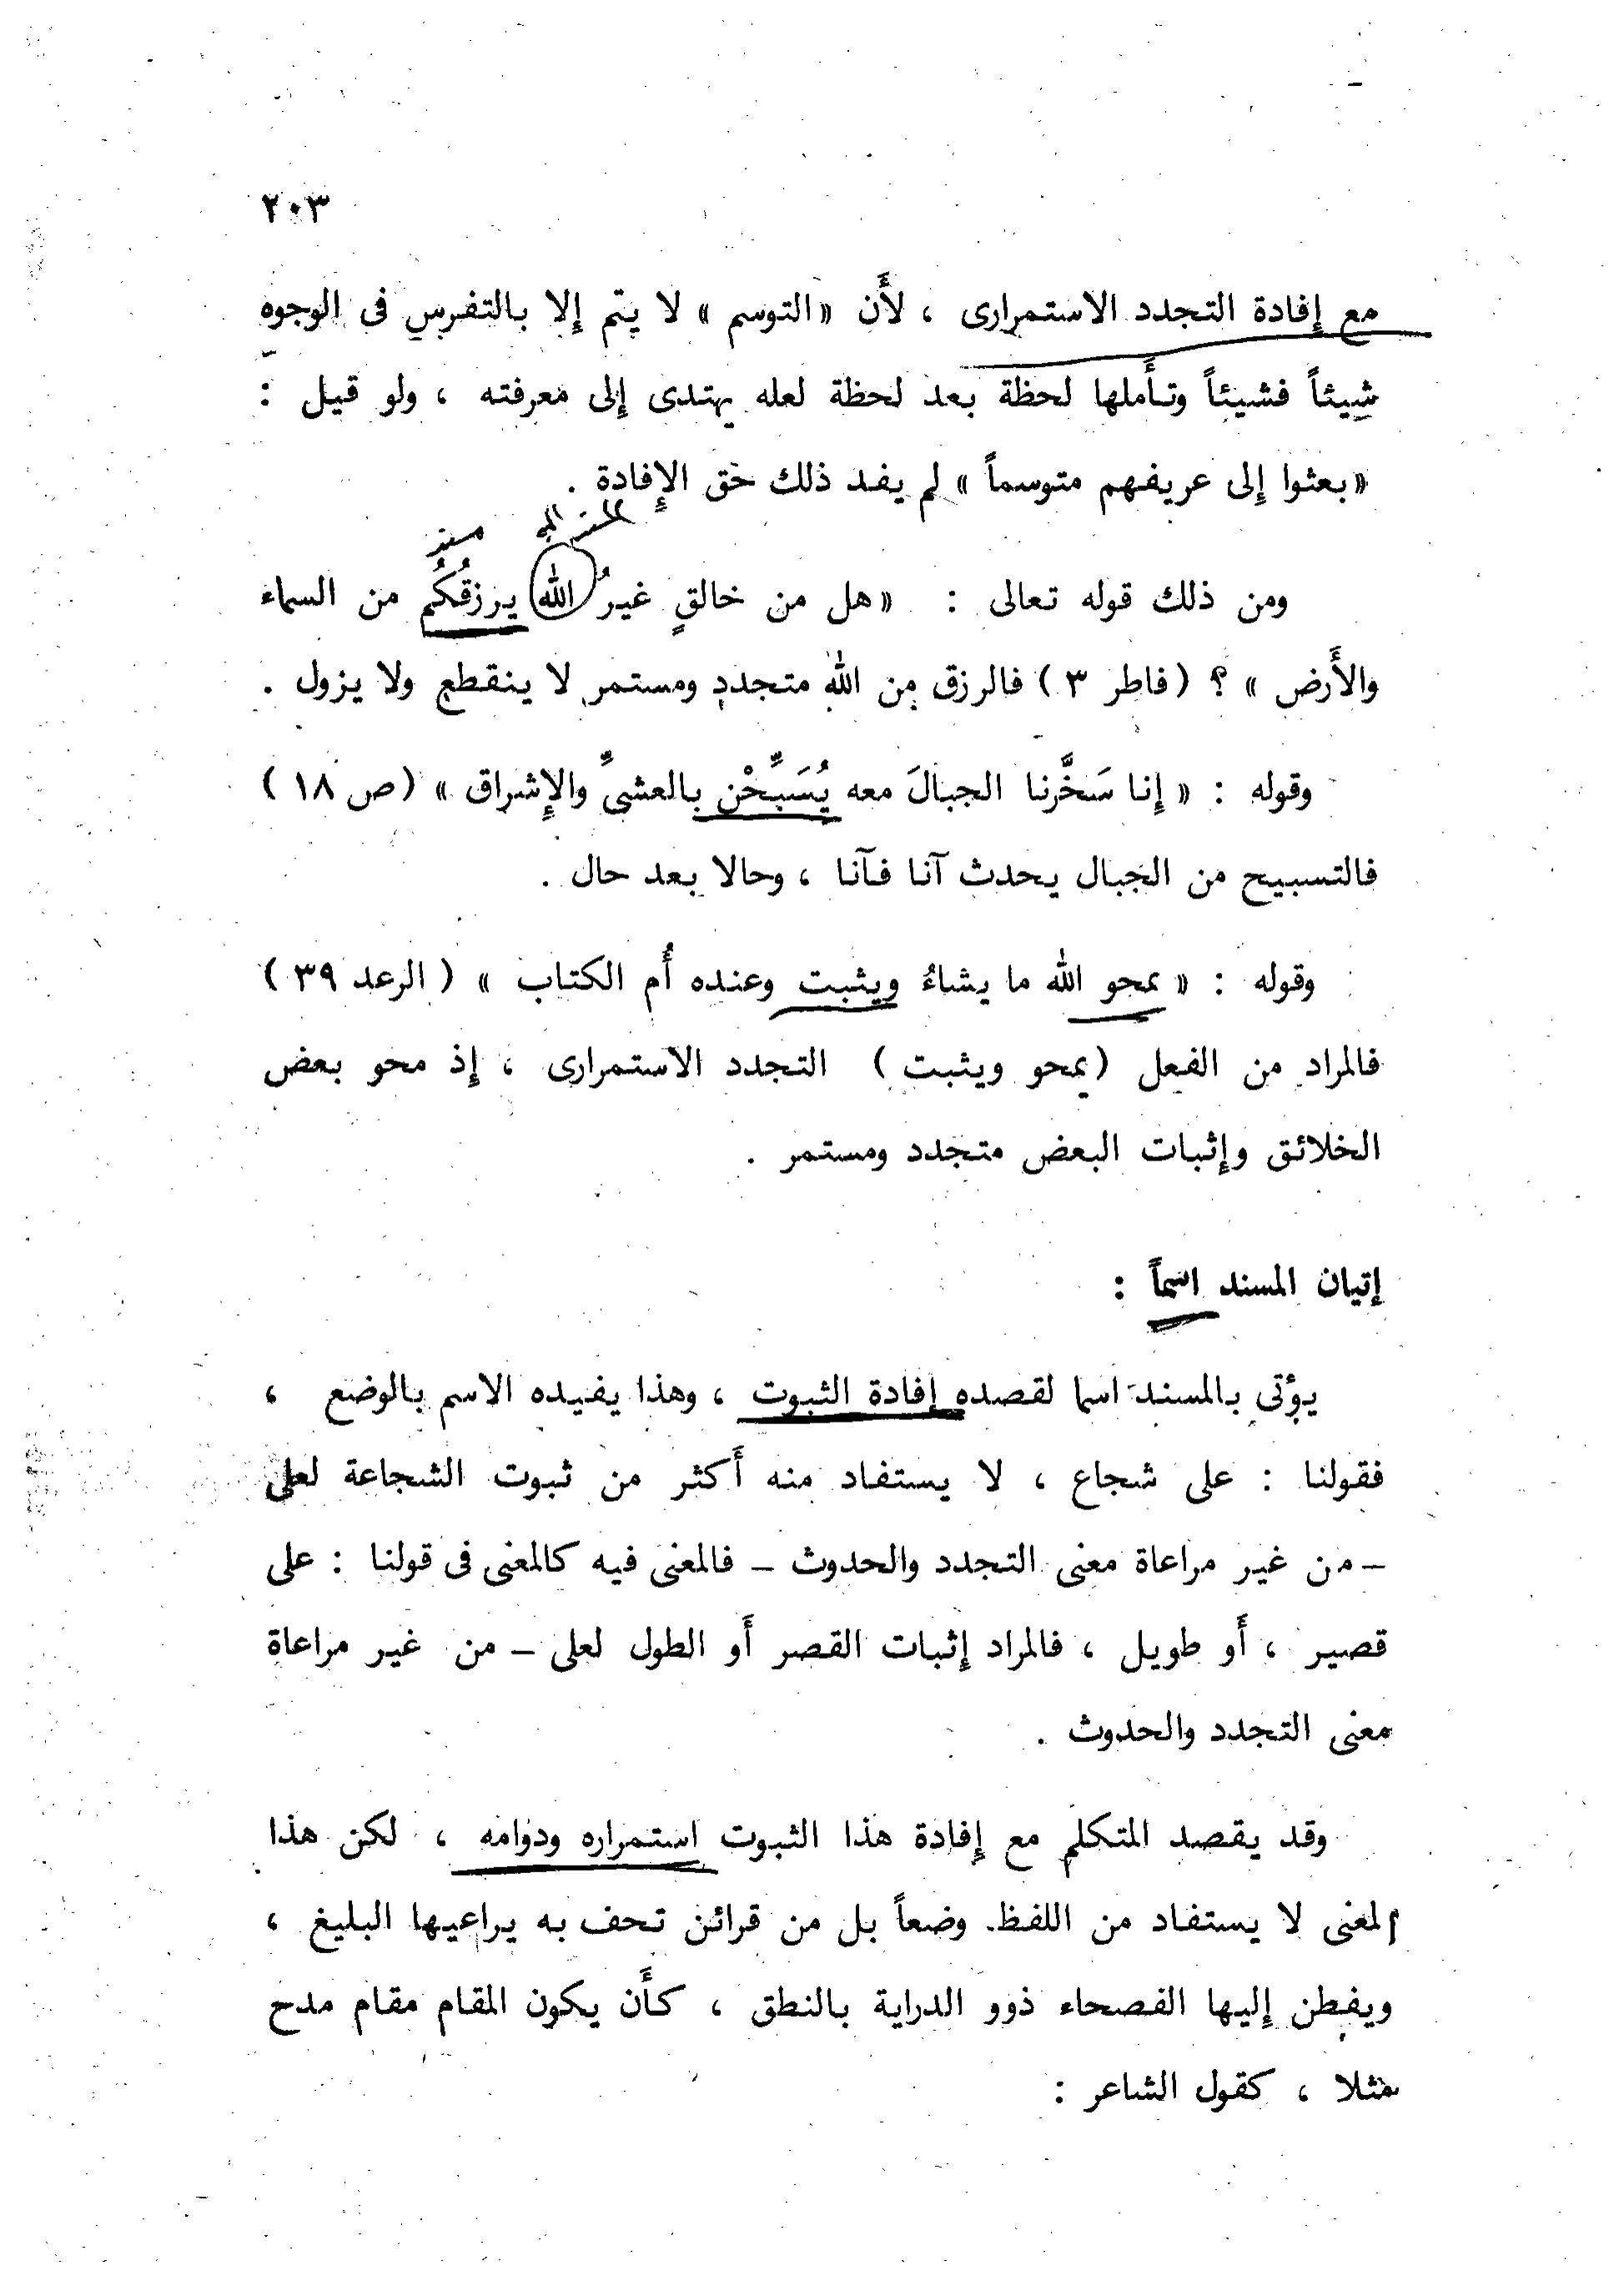 ٢٠٣
مع إفادة التجدد الاستمرارى ، لأَن «التوسم» لا يتم إلا بالتفرس فى الوجوه
شيئاً فشيئاً وتأَملها لحظة بعد لحظة لعله يهتدى إلى معرفته ، ولو قيل :
«بعثوا إلى عريفهم متوسماً» لم يفد ذلك حق الإفادة .
المسند إليه مسند
ومن ذلك قوله تعالى : «هل من خالقٍ غيرُ الله يرزقُكُم من السماء
والأَرض» ؟ (فاطر ٣) فالرزق من الله متجدد ومستمر لا ينقطع ولا يزول .
وقوله : «إنا سَخَّرنا الجبالَ معه يُسَبِّحْن بالعشىِّ والإشراق» (ص ١٨)
فالتسبيح من الجبال يحدث آنا فآنا ، وحالا بعد حال .
وقوله : «يمحو الله ما يشاءُ ويثبت وعنده أُم الكتاب» (الرعد ٣٩)
فالمراد من الفعل (يمحو ويثبت) التجدد الاستمرارى ، إذ محو بعض
الخلائق وإثبات البعض متجدد ومستمر .
إتيان المسند اسماً :
يؤتى بالمسند اسما لقصده إفادة الثبوت ، وهذا يفيده الاسم بالوضع ،
فقولنا : على شجاع ، لا يستفاد منه أَكثر من ثبوت الشجاعة لعلى
– من غير مراعاة معنى التجدد والحدوث – فالمعنى فيه كالمعنى فى قولنا : على
قصير ، أَو طويل ، فالمراد إثبات القصر أَو الطول لعلى – من غير مراعاة
معنى التجدد والحدوث .
وقد يقصد المتكلم مع إفادة هذا الثبوت استمراره ودوامه ، لكن هذا
المعنى لا يستفاد من اللفظ وضعاً بل من قرائن تحف به يراعيها البليغ ،
ويفطن إليها الفصحاء ذوو الدراية بالنطق ، كأَن يكون المقام مقام مدح
مثلا ، كقول الشاعر :